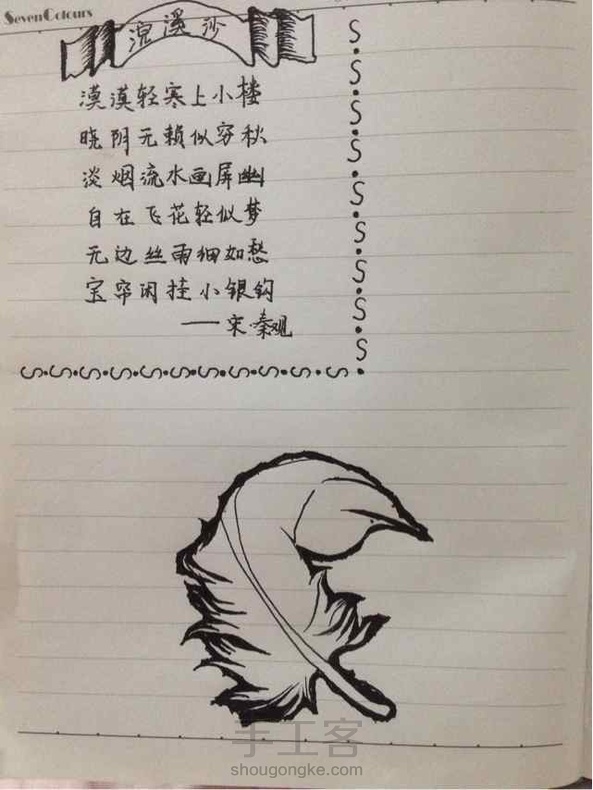 SevenColours
浣溪沙
漠漠轻寒上小楼
晓阴无赖似穷秋
淡烟流水画屏幽
自在飞花轻似梦
无边丝雨细如愁
宝帘闲挂小银钩
——宋·秦观
手工客
shougongke.com